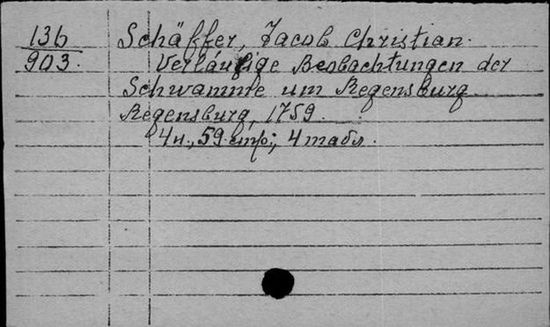 136
903.
Schäffer, Jacob Christian.
Verläufige Beobachtungen der
Schwamme um Regensburg
Regensburg, 1759.
4н., 59 стр.; 4 табл.